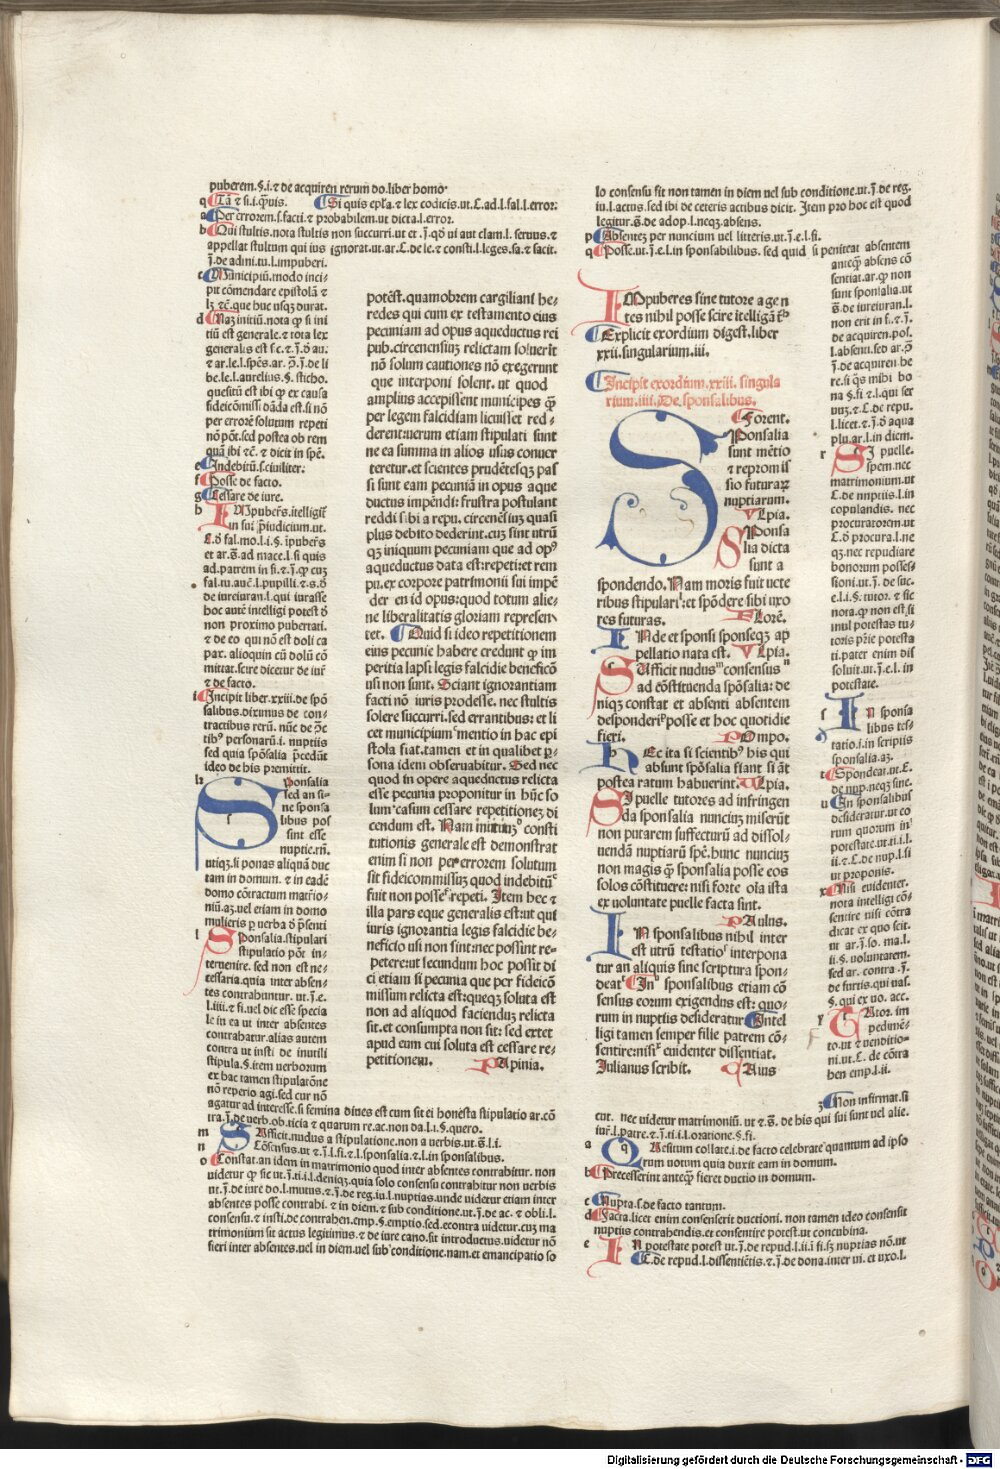 puberem.§.i.⁊ de acquiren rerum do.liber homo
q Tā ⁊ si.i.q̄uis. Si quis epl'a.⁊ lex codicis.ut.C.ad.l.fal.l.error:
a Per errorem.s.facti.⁊ probabilem.ut dicta.l.error.
b Qui stultis.nota stultis non succurri.ut et .j̄.q̄o ui aut clam.l. seruus.⁊
appellat stultum qui ius ignorat.ut ar.C.de le.⁊ consti.l.leges.sa.⁊ facit.
j̄.de admi.tu.l.impuberi.
c Municipiū.modo inci-
pit cōmendare epistolā ⁊
d Naz initiū.nota
tiū est generale.⁊ tota lex
generalis est
be.le.l.aurelius.§.sticho.
quesitū est ibi ex causa
fideicōmissi dāda est.si nō
per errorē solutum repeti
nō pōt.sed postea ob rem
e Indebitū.s.ciuiliter:
f Posse de facto.
g Cessare de iure.
h IMpubers.itelligit
in sui p̄iudicium.ut.
C.d fal.mo.l.i.§.ipubers
et ar.s̄.ad mace.l.si quis
ad.patrem in fi.⁊ j̄. cuz
fal.tu.auc̄.l.pupilli.⁊.s.d
de iureiuran.l.qui iurasse
hoc autē intelligi potest d
non proximo pubertati.
⁊ de eo qui nō est doli ca
pax. alioquin cū dolū cō
mittat.scire dicetur de iur
⁊ de facto.
i Incipit liber.xxiii.de spō
salibus.diximus de con-
tractibus rerū. nūc de
tib' personarū.i. nuptiis
sed quia spōsalia p̄cedūt
ideo de his premittit.
k SPonsalia
sed an si-
ne sponsa
libus pos
sint esse
nuptie.rn̄.
utiqz.si ponas aliquā duc
tam in domum. ⁊ in eadē
domo cōtractum matrīo-
niū.az.uel etiam in domo
mulieris p uerba d p̄senti
l SPonsalia.stipulari
stipulatio pōt in-
teruenire. sed non est ne-
cessaria.quia inter absen-
tes contrahuntur. ut.j̄.e.
l.iiii.⁊ fi.uel dic esse specia
le in ea ut inter absentes
contrahatur.alias autem
contra ut insti de inutili
stipula.§.item uerborum
ex hac tamen stipulatōne
nō reperio agi.sed cur nō
agatur ad interesse.si femina diues est cum sit ei honesta stipulatio ar.cō
tra.j̄.de uerb.ob.titia ⁊ quarum re.ac.non da.l.i.§.quero.
m SVfficit.nudus a stipulatione.non a uerbis.ut s̄.l.i.
n Cōsensus.ut ⁊.j̄.l.fi.⁊.l.sponsalia.⁊.l.in sponsalibus.
o Constat.an idem in matrimonio quod inter absentes contrahitur. non
uidetur sic ut.j̄.ti.i.l.deniqz.quia solo consensu contrahitur non uerbis
ut.j̄.de iure do.l.mutus.⁊ j̄.de reg.iu.l.nuptias.unde uidetur etiam inter
absentes posse contrahi.⁊ in diem.⁊ sub conditione.ut.j̄.de ac.⁊ obli.l.
consensu.⁊ insti.de contrahen.emp.§.emptio.sed.econtra uidetur.cuz ma
trimonium sit actus legitimus.⁊ de iure cano.sit introductus.uidetur nō
fieri inter absentes.uel in diem.uel sub conditione.nam.et emancipatio so
potēst.quamobrem cargiliani he-
redes qui cum ex testamento eius
pecuniam ad opus aqueductus rei
pub.circensiuz relictam soluerīt
nō solum cautiones nō exegerunt
que interponi solent.ut quod
amplius accepissent municipes
per legem falcidiam licuisset red-
derent:uerum etiam stipulati sunt
ne ea summa in alios usus conuer
teretur.et scientes prudētesqz pas
si sunt eam pecuniā in opus aque
ductus impēdi: frustra postulant
reddi sibi a repu. circensiuz quasi
plus debito dederint.cuz sint utrū
qz iniquum pecuniam que ad op'
aqueductus data est:repeti:et rem
pu.ex corpore patrimonii sui impē
der en id opus:quod totum alie-
ne liberalitatis gloriam represen-
tet. Quid si ideo repetitionem
eius pecunie habere credunt im
peritia lapsi legis falcidie beneficō
usi non sunt. Sciant ignorantiam
facti nō iuris prodesse.nec stultis
solere succurri.sed errantibus:et li
cet municipium mentio in hac epi
stola fiat.tamen et in qualibet p-
sona idem obseruabitur. Sed nec
quod in opere aqueductus relicta
esse pecunia proponitur in hūc so
lum casum cessare repetitionez di
cendum est. Nam initiuz consti
tutionis generale est demonstrat
enim si non per errorem solutum
sit fideicommissuz quod indebitū
fuit non posse repeti. Item hec ⁊
illa pars eque generalis est:ut qui
iuris ignorantia legis falcidie be-
neficio usi non sint.nec possint re-
petere:ut secundum hoc possit di
ci etiam si pecunia que per fideicō
missum relicta est:queqz soluta est
non ad aliquod faciendūz relicta
sit.et consumpta non sit: sed extet
apud eum cui soluta est cessare re-
petitionem. PApinia.
lo consensu fit non tamen in diem uel sub conditione.ut.j̄.de reg.
iu.l.actus.sed ibi de ceteris actibus dicit. Item pro hoc est quod
legitur.s̄.de adop.l.neqz.absens.
p Absentez per nuncium uel litteris.ut.j̄.e.l.fi.
q Posse.ut.j̄.e.l.in sponsalibus. sed quid si peniteat absentem
anteq̄ absens cō
sentiat.ar. non
sunt sponsalia.ut
s̄.de iureiuran.l.
non erit in f..⁊.j̄.
de acquiren.pos.
l.absenti.sed ar.
j̄.de acquiren.he
re.si q̄s mihi bo
na.§.fi.⁊.l.qui ser
uuz.⁊.C.de repu.
l.licet.⁊.j̄.d aqua
plu.ar.l.in diem.
r SI puelle.
spem.nec
matrimonium.ut
C.de nuptiis.l.in
copulandis. nec
procuratorem.ut
C.d procura.l.ne
qz.nec repudiare
bonorum posses-
sioni.ut.j̄.de suc.
e.l.i.§.tutor.⁊ sic
nota. non est.si
mul potestas tu-
toris p̄rie potesta
ti.pater enim dis
soluit.ut.j̄.e.l. in
potestate.
IMpuberes sine tutore agen
tes nihil posse scire itelligāt
Explicit exordium digest.liber
xxii.singularium.iii.
Incipit exordium.xxiii. singula
rium.iiii.De sponsalibus.
Florent.
SPonsalia
sunt mētio
⁊ repromis
sio futuraꝝ
nuptiarum.
VLpia.
SPonsa
lia dicta
sunt a
spondendo. Nam moris fuit uete
ribus stipulari:et spōdere sibi uxo
res futuras. FLorē.
INde et sponsi sponseqz ap
pellatio nata est. VLpia.
SVfficit nudus consensus
ad cōstituenda spōsalia: de
niqz constat et absenti absentem
desponderi posse et hoc quotidie
fieri. POmpo.
HEc ita si scientib' his qui
absunt spōsalia fiant si āt
postea ratum habuerint. VLpia.
SI puelle tutores ad infringen
da sponsalia nunciuz miserūt
non putarem suffecturū ad dissol-
uendā nuptiarū spē.hunc nunciuz
non magis sponsalia posse eos
solos cōstituere: nisi forte oīa ista
ex uoluntate puelle facta sint.
PAulus.
IN sponsalibus nihil inter
est utrū testatio interpona
tur an aliquis sine scriptura spon-
deat In sponsalibus etiam cō
sensus eorum exigendus est: quo-
rum in nuptiis desideratur Intel
ligi tamen semper filie patrem cō-
sentire:nisi euidenter dissentiat.
Iulianus scribit. GAius
s IN sponsa
libus tes-
tatio.i.in scriptis
sponsalia.az.
t Spondeat.ut.C.
de nup.neqz sine.
u In sponsalibus
desideratur.ut eo
rum quorum in
potestate.ut.ti.i.l.
ii.⁊.C.de nup.l.si
ut proponis.
x Nisi euidenter.
nota intelligi cō-
sentire nisi cōtra
dicat ex quo scit.
ut ar.j̄.so.ma.l.
ii.§. uoluntatem.
sed ar. contra .j̄.
de furtis.qui uas.
§.qui ex uo. acc.
im
pedimē-
to.ut ⁊ uenditio-
ni.ut.C. de cōtra
hen emp.l.ii.
z Non infirmat.si
cut. nec uidetur matrimoniū. ut ⁊.s̄. de his qui sui sunt uel alie.
iur.l.patre.⁊ j̄.ti.i.l.oratione.§.fi.
a QVesitum collare.i.de facto celebrate quantum ad ipso
rum uotum quia duxit eam in domum.
b Precesserint antēq̄ fieret ductio in domum.
c Nupta.s.de facto tantum.
d Facta.licet enim consenserit ductioni. non tamen ideo consensit
nuptiis contrahendis.et consentire potest.ut concubina.
e IN potestate potest ut.j̄.de repud.l.ii.i fi.sz nuptias nō.ut
C.de repud.l.dissentiētis.⁊ j̄.de dona.inter ui. et uxo.l.
Digitalisierung gefördert durch die Deutsche Forschungsgemeinschaft - DFG